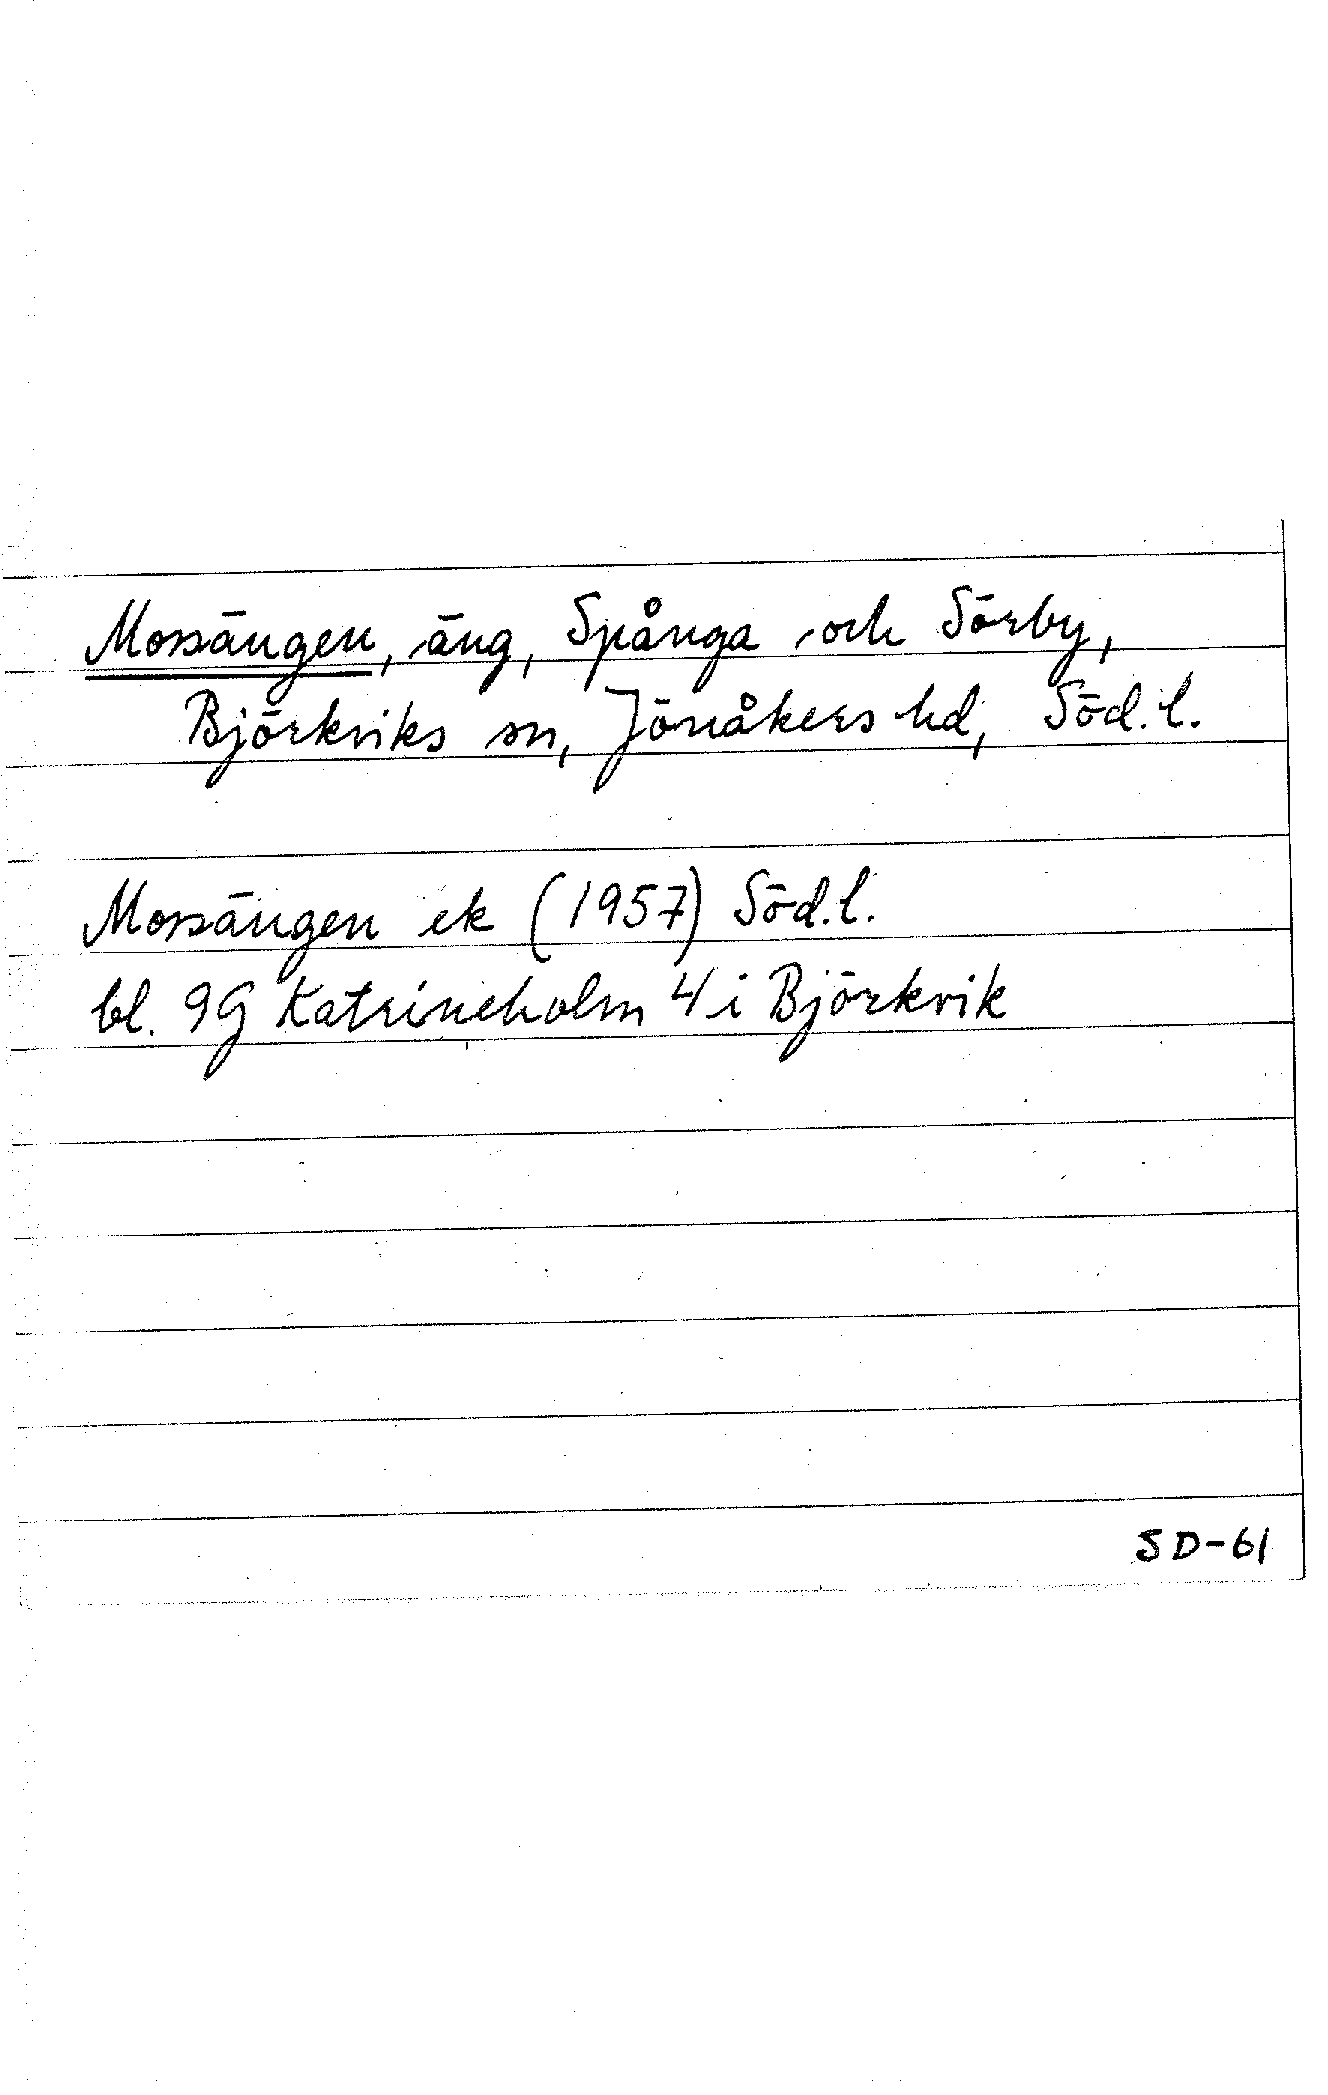 Mossängen, äng, Spånga och Sörby,
Björkviks sn, Jönåkers hd, Söd. l.
Mossängen ek (1957) Söd. l.
bl. 9G Katrineholm 4 i Björkvik
SD-61